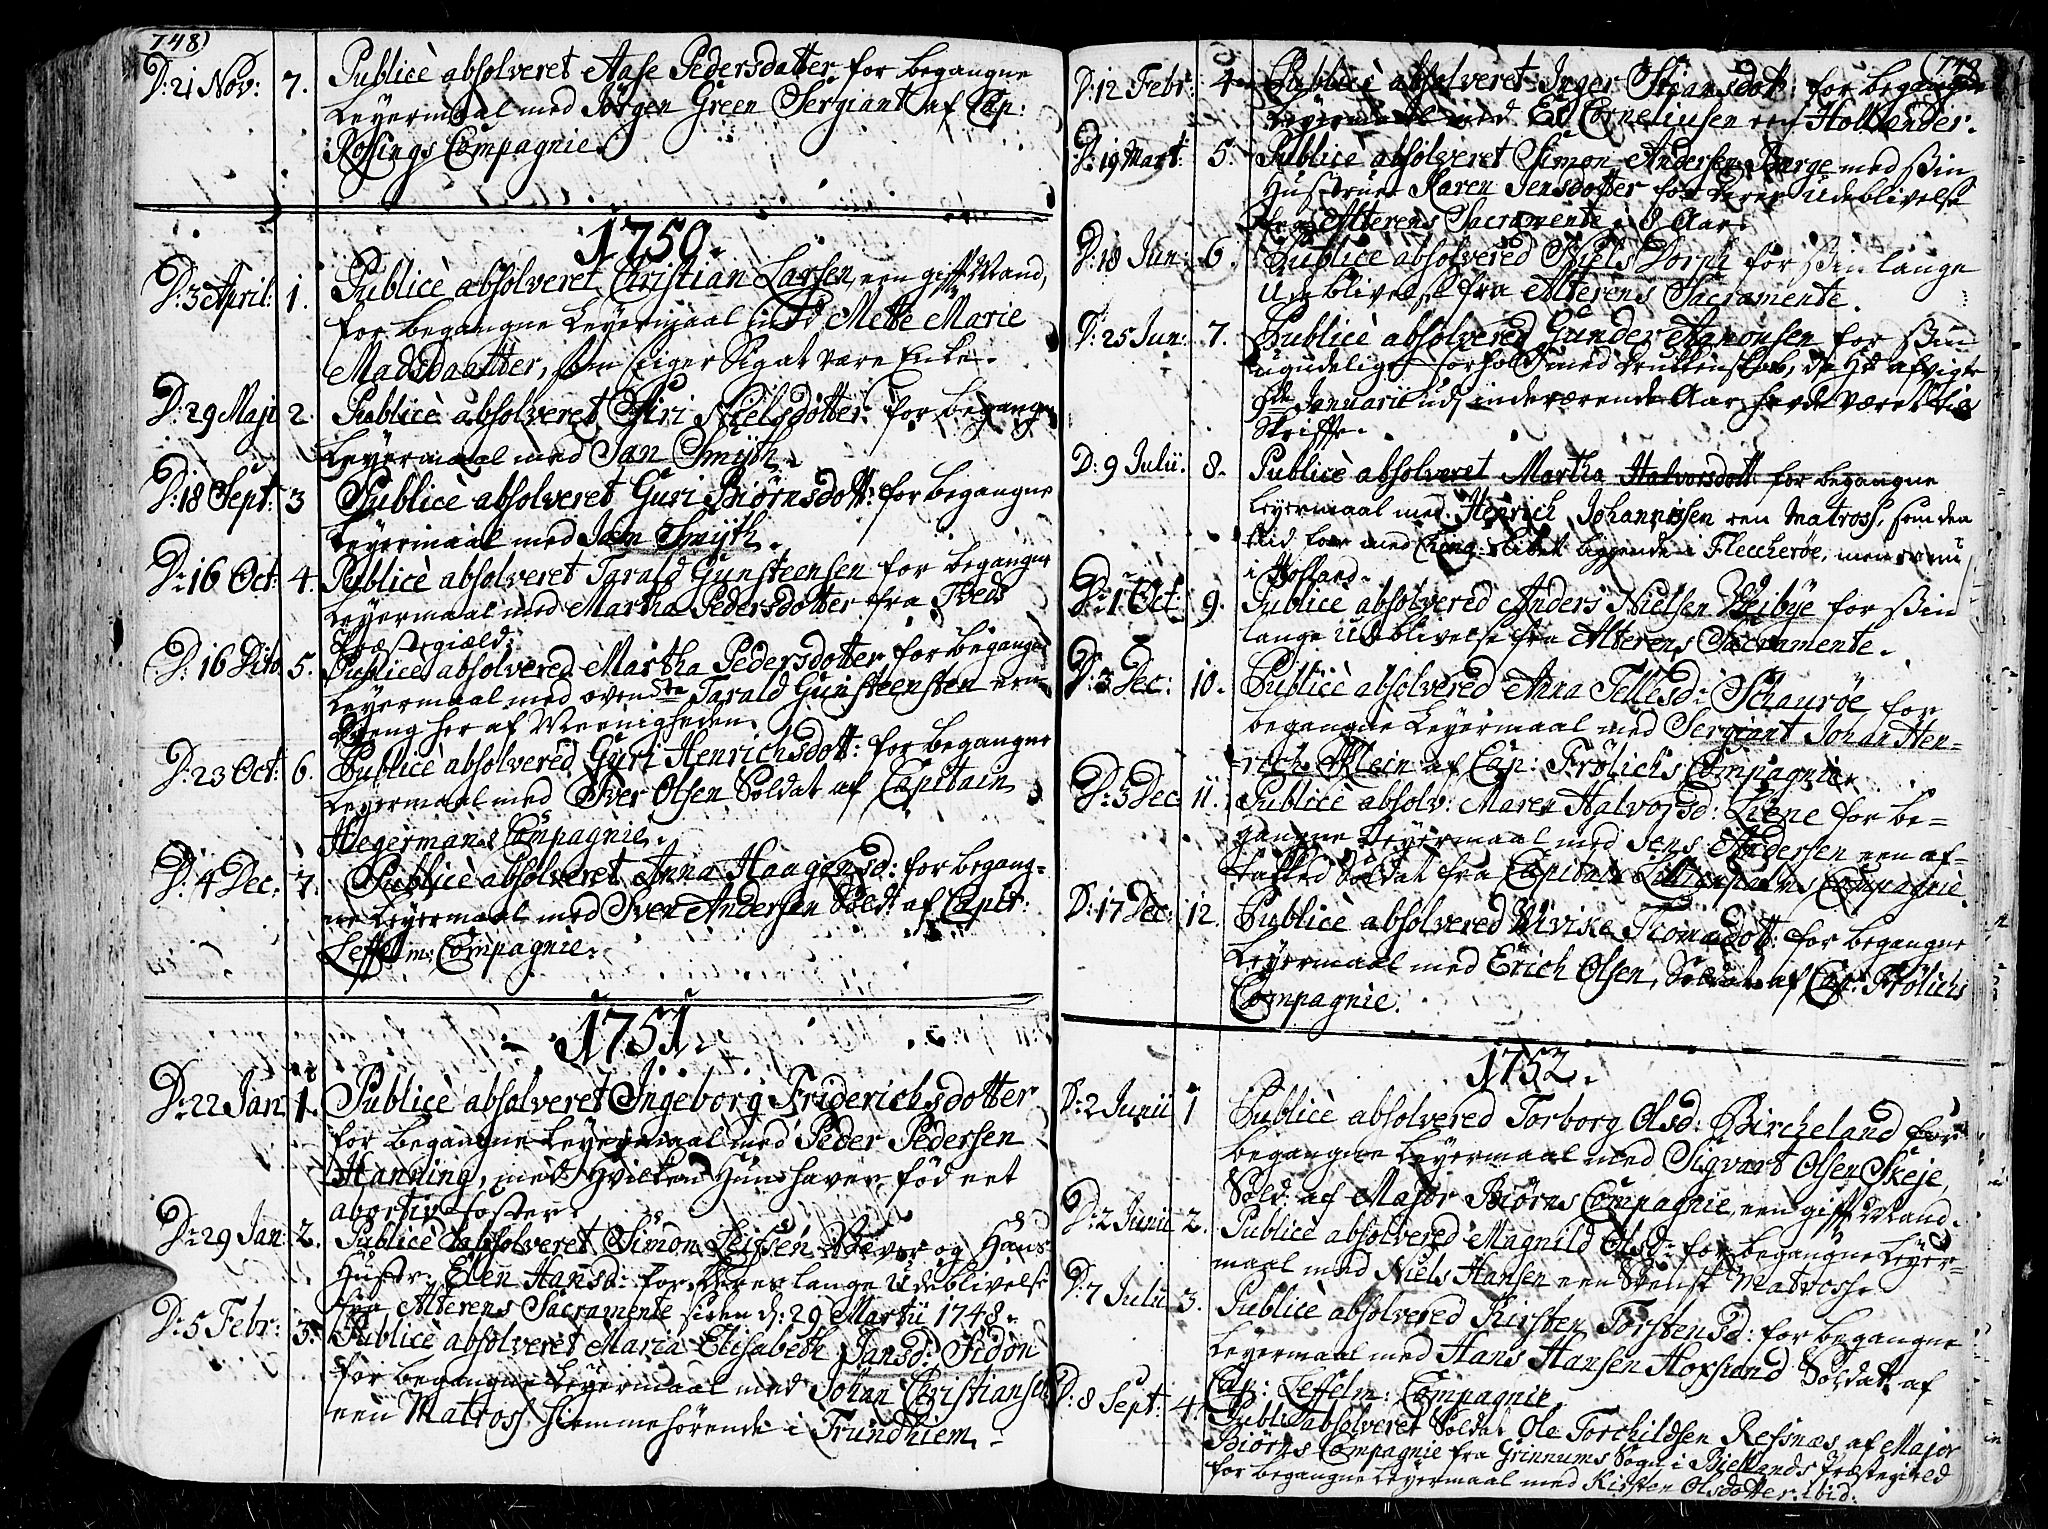 748)
D: 21 Nov: 7. Publicè absolveret Aase Pedersdatter for begangne
Leyermaal med Jörgen Green Sergiant af Cap:
Rossings Compagnie.
1750.
D: 3 April: 1. Publicè absolveret Christian Larsen, een gift Mand,
for begangne Leyermaal med Mette Marie
Madsdaatter, som siger sig at være Enke.
D: 29 Maji 2. Publicè absolveret Siri Nielsdotter for begangne
Leyermaal med Jan Smith.
D: 18 Sept: 3 Publicè absolveret Guri Biörnsdott: for begangne
Leyermaal med Jam Smijth.
D: 16 Oct: 4. Publicè absolveret Tarald Gunsteensen for begangne
Leyermaal med Martha Pedersdotter fra Tveds
Præstegield.
D: 16 Dito 5. Publicè absolvered Martha Pedersdotter for begangne
Leyermaal med ovenste Tarald Gunsteensten een
Dreng her af Meenigheden.
D: 23 Oct: 6. Publicè absolvered Guri Henrichsdott: for begangne
Leyermaal med Siver Olsen Soldat af Capitain
Hegermans Compagnie.
D: 4 Dec: 7. Publicè absolveret Anna Haagensd: for begang-
ne Leyermaal med Sven Andersen Sold: af Capit:
Leffelm: Compagnie.
1751.
D: 22 Jan: 1. Publicè absolveret Ingeborg Friderichsdotter
for begangne Leyermaal med Peder Pedersen
Hanning, med hvilken hun haver fød eet
abortiv foster.
D: 29 Jan: 2. Publicè absolveret Simon Leifsen Bever og Hans
Hustr: Elen Hansd: for deres lange Udeblivelse
fra Alterens Sacramente siden d: 29 Martii 1748.
D: 5 Febr: 3. Publicè absolveret Maria Elisabeth Jansd: Sidon
for begangne Leyermaal med Johan Christiansen
een Matros hiemmehörende i Trundhiem.
(749
D: 12 Febr: 4. Publicè absolveret Inger Stiansdott: for begangne
Leyermaal med Ed Corneliusen een Hollænder.
D: 19 Mart: 5. Publicè absolveret Simon Andersen Berge med sin
Hustrue Karen Jensdotter for deres Udeblivelse
fra Alterens Sacramente i 8 Aar.
D: 18 Jun: 6. Publicè absolvered Niels Dorph for sin lange
Udeblivelse fra Alterens Sacramente.
D: 25 Jun: 7. Publicè absolvered Gunder Aanonsen for sin
ugudelige forhold med druckenskab, da Hd afvigte
9de Januarii udj indeværende Aar hafde været til
Skrifte.
D: 9 Julii. 8. Publicè absolveret Martha Halvorsdott for begangne
Leyermaal med Henrich Johannissen een Matross, som den
tid foer med Cong: Skibet liggende i Fleccheröe, men er nu
i Holland.
D: 1 Oct: 9. Publicè absolvered Anders Nielsen Weibye for sin
lange Udeblivelse fra Alterens Sacramente.
D: 3 Dec: 10. Publicè absolvered Anna Tellefsd: Schauröe for
begangne Leyermaal med Sergiant Johan Hen-
rich Klein af Cap: Frölichs Compagnie.
D: 3 Dec. 11. Publicè absolv: Maren Halvorsd: Liene for be-
gangne Leyermaal med Jens Andersen een af-
takked Soldat fra Capitain Lillienpalms Compagnie.
D: 17 Dec: 12. Publicè absolvered Wivike Tiomædott: for begangne
Leyermaal med Erich Olsen, Soldat af Cap: Frölichs
Compagnie.
1752.
D: 2 Junii 1 Publicè absolvered Torborg Olsd: Bircheland for
begangne Leyermaal med Sigvart Olsen Skeje,
Sold: af Major Biörns Compagnie, een gift Mand.
D: 2 Junii 2. Publicè absolvered Magnild Olsd: for begangne Leyer-
maal med Niels Hansen een Svensk Matross.
D: 7 Julii 3. Publicè absolvered Kirsten Torstensd: for begangne
Leyermaal med Hans Hansen Hoxsand Soldat af
Cap: Leffelm: Compagnie.
D: 8 Sept: 4. Public: absolveret Soldat Ole Torchildsen Refsnæs af Major
Biörns Compagnie fra Grinnums Sogn i Biellands Præstegield
for begangne Leyermaal med Kirsten Olsdotter ibid: